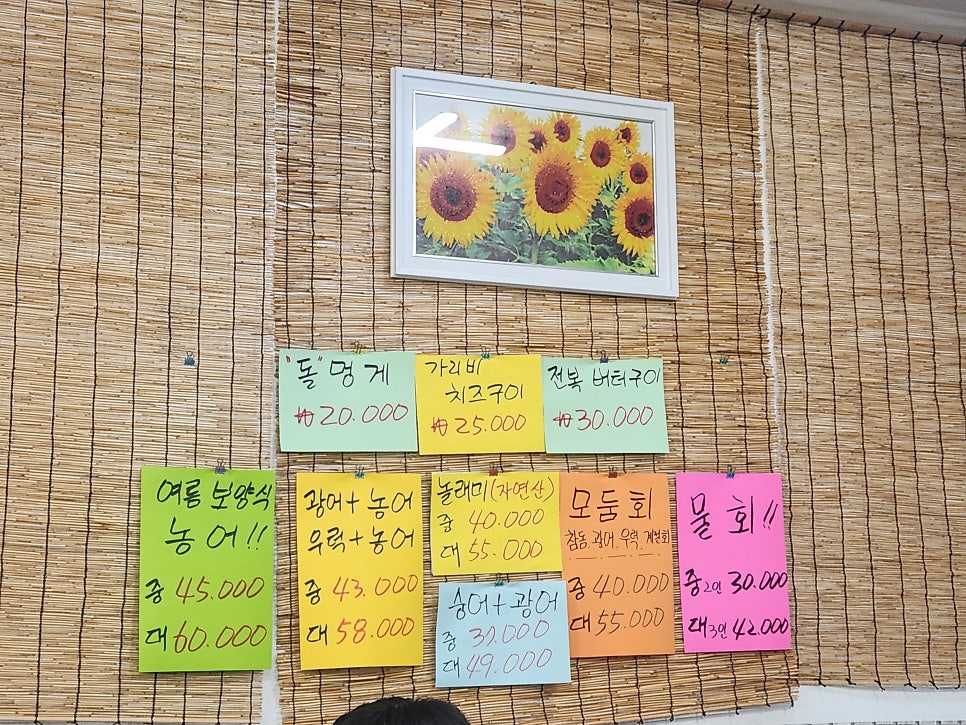 "돌" 멍게
₩20.000
가리비
치즈구이
₩25.000
전복 버터구이
₩30.000
여름 보양식
농어!!
중 45.000
대 60.000
광어+농어
우럭+농어
중 43.000
대 58.000
놀래미(자연산)
중 40.000
대 55.000
숭어+광어
중 37.000
대 49.000
모둠회
참돔.광어.우럭.계절회
중 40.000
대 55.000
물회!!
중2인 30.000
대3인 42.000